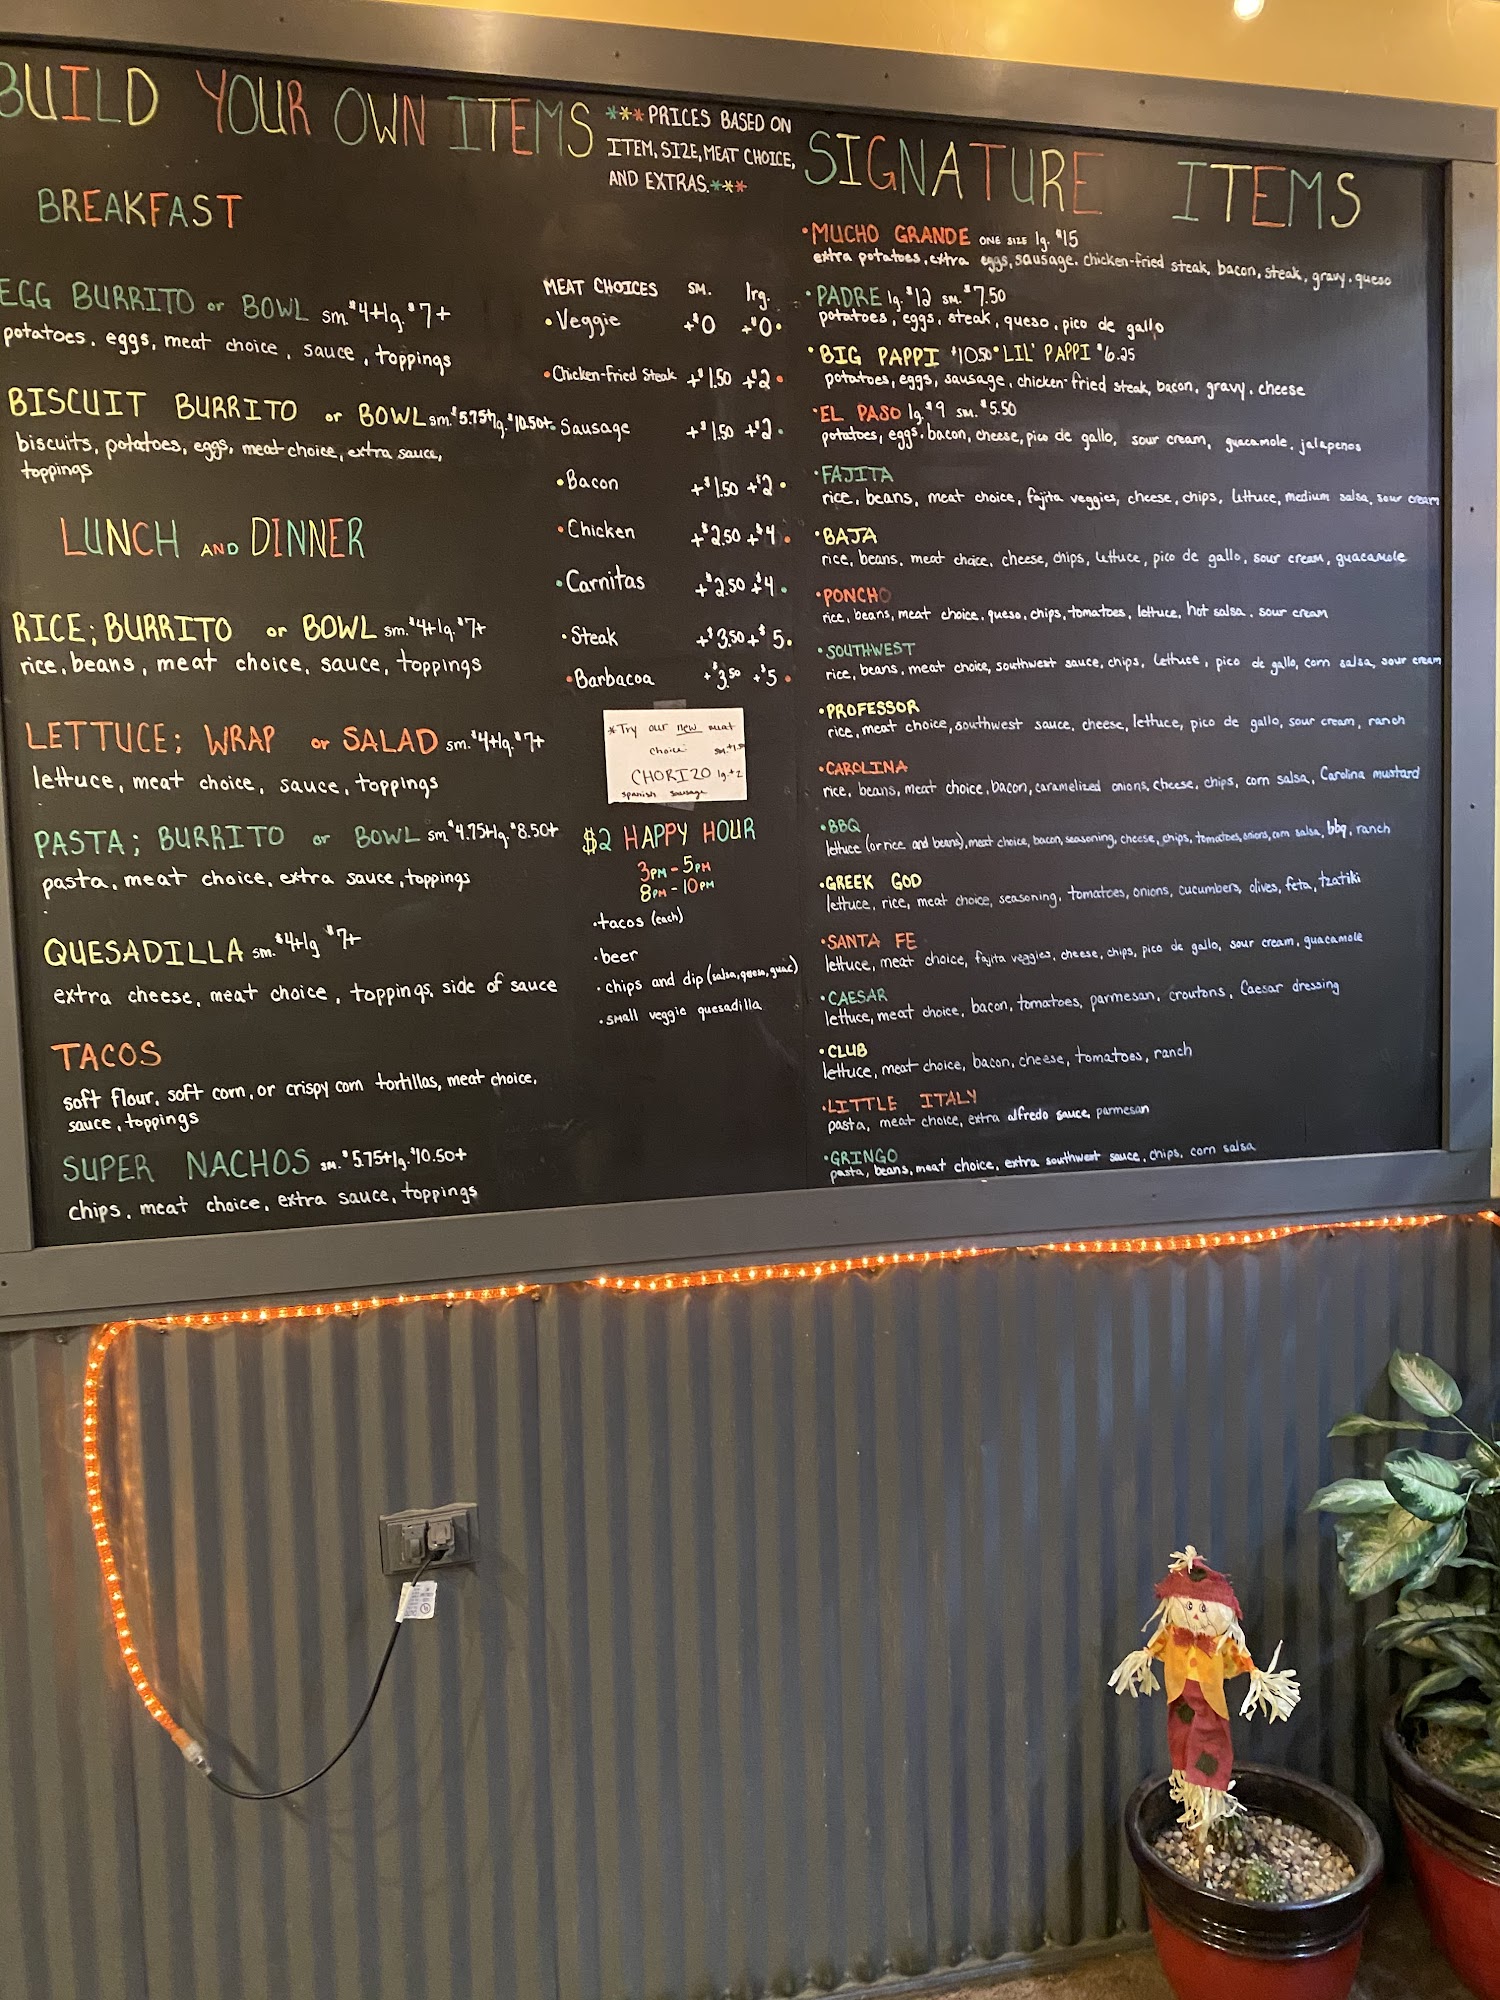 BUILD YOUR OWN ITEMS
***PRICES BASED ON
ITEM, SIZE, MEAT CHOICE,
AND EXTRAS.***
BREAKFAST
EGG BURRITO or BOWL sm. $4+ lg. $7+
potatoes, eggs, meat choice, sauce, toppings
BISCUIT BURRITO or BOWL sm. $5.75+ lg. $10.50+
biscuits, potatoes, eggs, meat choice, extra sauce,
toppings
LUNCH AND DINNER
RICE; BURRITO or BOWL sm. $4+ lg. $7+
rice, beans, meat choice, sauce, toppings
LETTUCE; WRAP or SALAD sm. $4+ lg. $7+
lettuce, meat choice, sauce, toppings
PASTA; BURRITO or BOWL sm. $4.75+ lg. $8.50+
pasta, meat choice, extra sauce, toppings
QUESADILLA sm. $4+ lg $7+
extra cheese, meat choice, toppings, side of sauce
TACOS
soft flour, soft corn, or crispy corn tortillas, meat choice,
sauce, toppings
SUPER NACHOS sm. $5.75+ lg. $10.50+
chips, meat choice, extra sauce, toppings
MEAT CHOICES SM. lrg.
• Veggie +$0 +$0•
• Chicken-Fried Steak +$1.50 +$2 •
• Sausage +$1.50 +$2 •
• Bacon +$1.50 +$2 •
• Chicken +$2.50 +$4 •
• Carnitas +$2.50 +$4 •
• Steak +$3.50 +$5 •
• Barbacoa +$3.50 +$5 •
*Try our new meat
choice sm.+1.50
CHORIZO lg.+2
spanish sausage
$2 HAPPY HOUR
3PM - 5PM
8PM - 10PM
• tacos (each)
• beer
• chips and dip (salsa, queso, guac)
• small veggie quesadilla
SIGNATURE ITEMS
• MUCHO GRANDE ONE SIZE lg. $15
extra potatoes, extra eggs, sausage, chicken-fried steak, bacon, steak, gravy, queso
• PADRE lg. $12 SM. $7.50
potatoes, eggs, steak, queso, pico de gallo
• BIG PAPPI $10.50 • LIL' PAPPI $6.25
potatoes, eggs, sausage, chicken-fried steak, bacon, gravy, cheese
• EL PASO lg. $9 SM. $5.50
potatoes, eggs, bacon, cheese, pico de gallo, sour cream, guacamole, jalapenos
• FAJITA
rice, beans, meat choice, fajita veggies, cheese, chips, lettuce, medium salsa, sour cream
• BAJA
rice, beans, meat choice, cheese, chips, lettuce, pico de gallo, sour cream, guacamole
• PONCHO
rice, beans, meat choice, queso, chips, tomatoes, lettuce, hot salsa, sour cream
• SOUTHWEST
rice, beans, meat choice, southwest sauce, chips, lettuce, pico de gallo, corn salsa, sour cream
• PROFESSOR
rice, meat choice, southwest sauce, cheese, lettuce, pico de gallo, sour cream, ranch
• CAROLINA
rice, beans, meat choice, bacon, caramelized onions, cheese, chips, corn salsa, Carolina mustard
• BBQ
lettuce (or rice and beans), meat choice, bacon, seasoning, cheese, chips, tomatoes, onions, corn salsa, bbq, ranch
• GREEK GOD
lettuce, rice, meat choice, seasoning, tomatoes, onions, cucumbers, olives, feta, tzatiki
• SANTA FE
lettuce, meat choice, fajita veggies, cheese, chips, pico de gallo, sour cream, guacamole
• CAESAR
lettuce, meat choice, bacon, tomatoes, parmesan, croutons, Caesar dressing
• CLUB
lettuce, meat choice, bacon, cheese, tomatoes, ranch
• LITTLE ITALY
pasta, meat choice, extra alfredo sauce, parmesan
• GRINGO
pasta, beans, meat choice, extra southwest sauce, chips, corn salsa